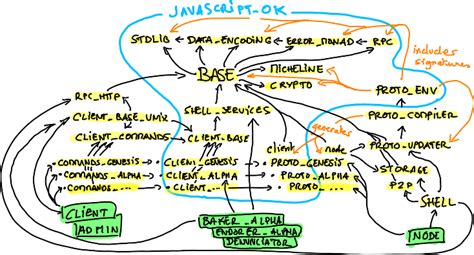 JAVASCRIPT_OK
STDLIB DATA_ENCODING ERROR_MONAD RPC
includes
signatures
BASE MICHELINE
CRYPTO PROTO_ENV
RPC_HTTP
SHELL_SERVICES PROTO_COMPILER
CLIENT_BASE_UNIX generates
CLIENT_COMMANDS CLIENT_BASE client node PROTO_UPDATER
COMMANDS_GENESIS CLIENT_GENESIS PROTO_GENESIS STORAGE
COMMANDS_ALPHA CLIENT_ALPHA PROTO_ALPHA P2P
COMMANDS_... CLIENT_... PROTO_... SHELL
CLIENT
ADMIN
BAKER_ALPHA
ENDORER_ALPHA
DENUNCIATOR
NODE